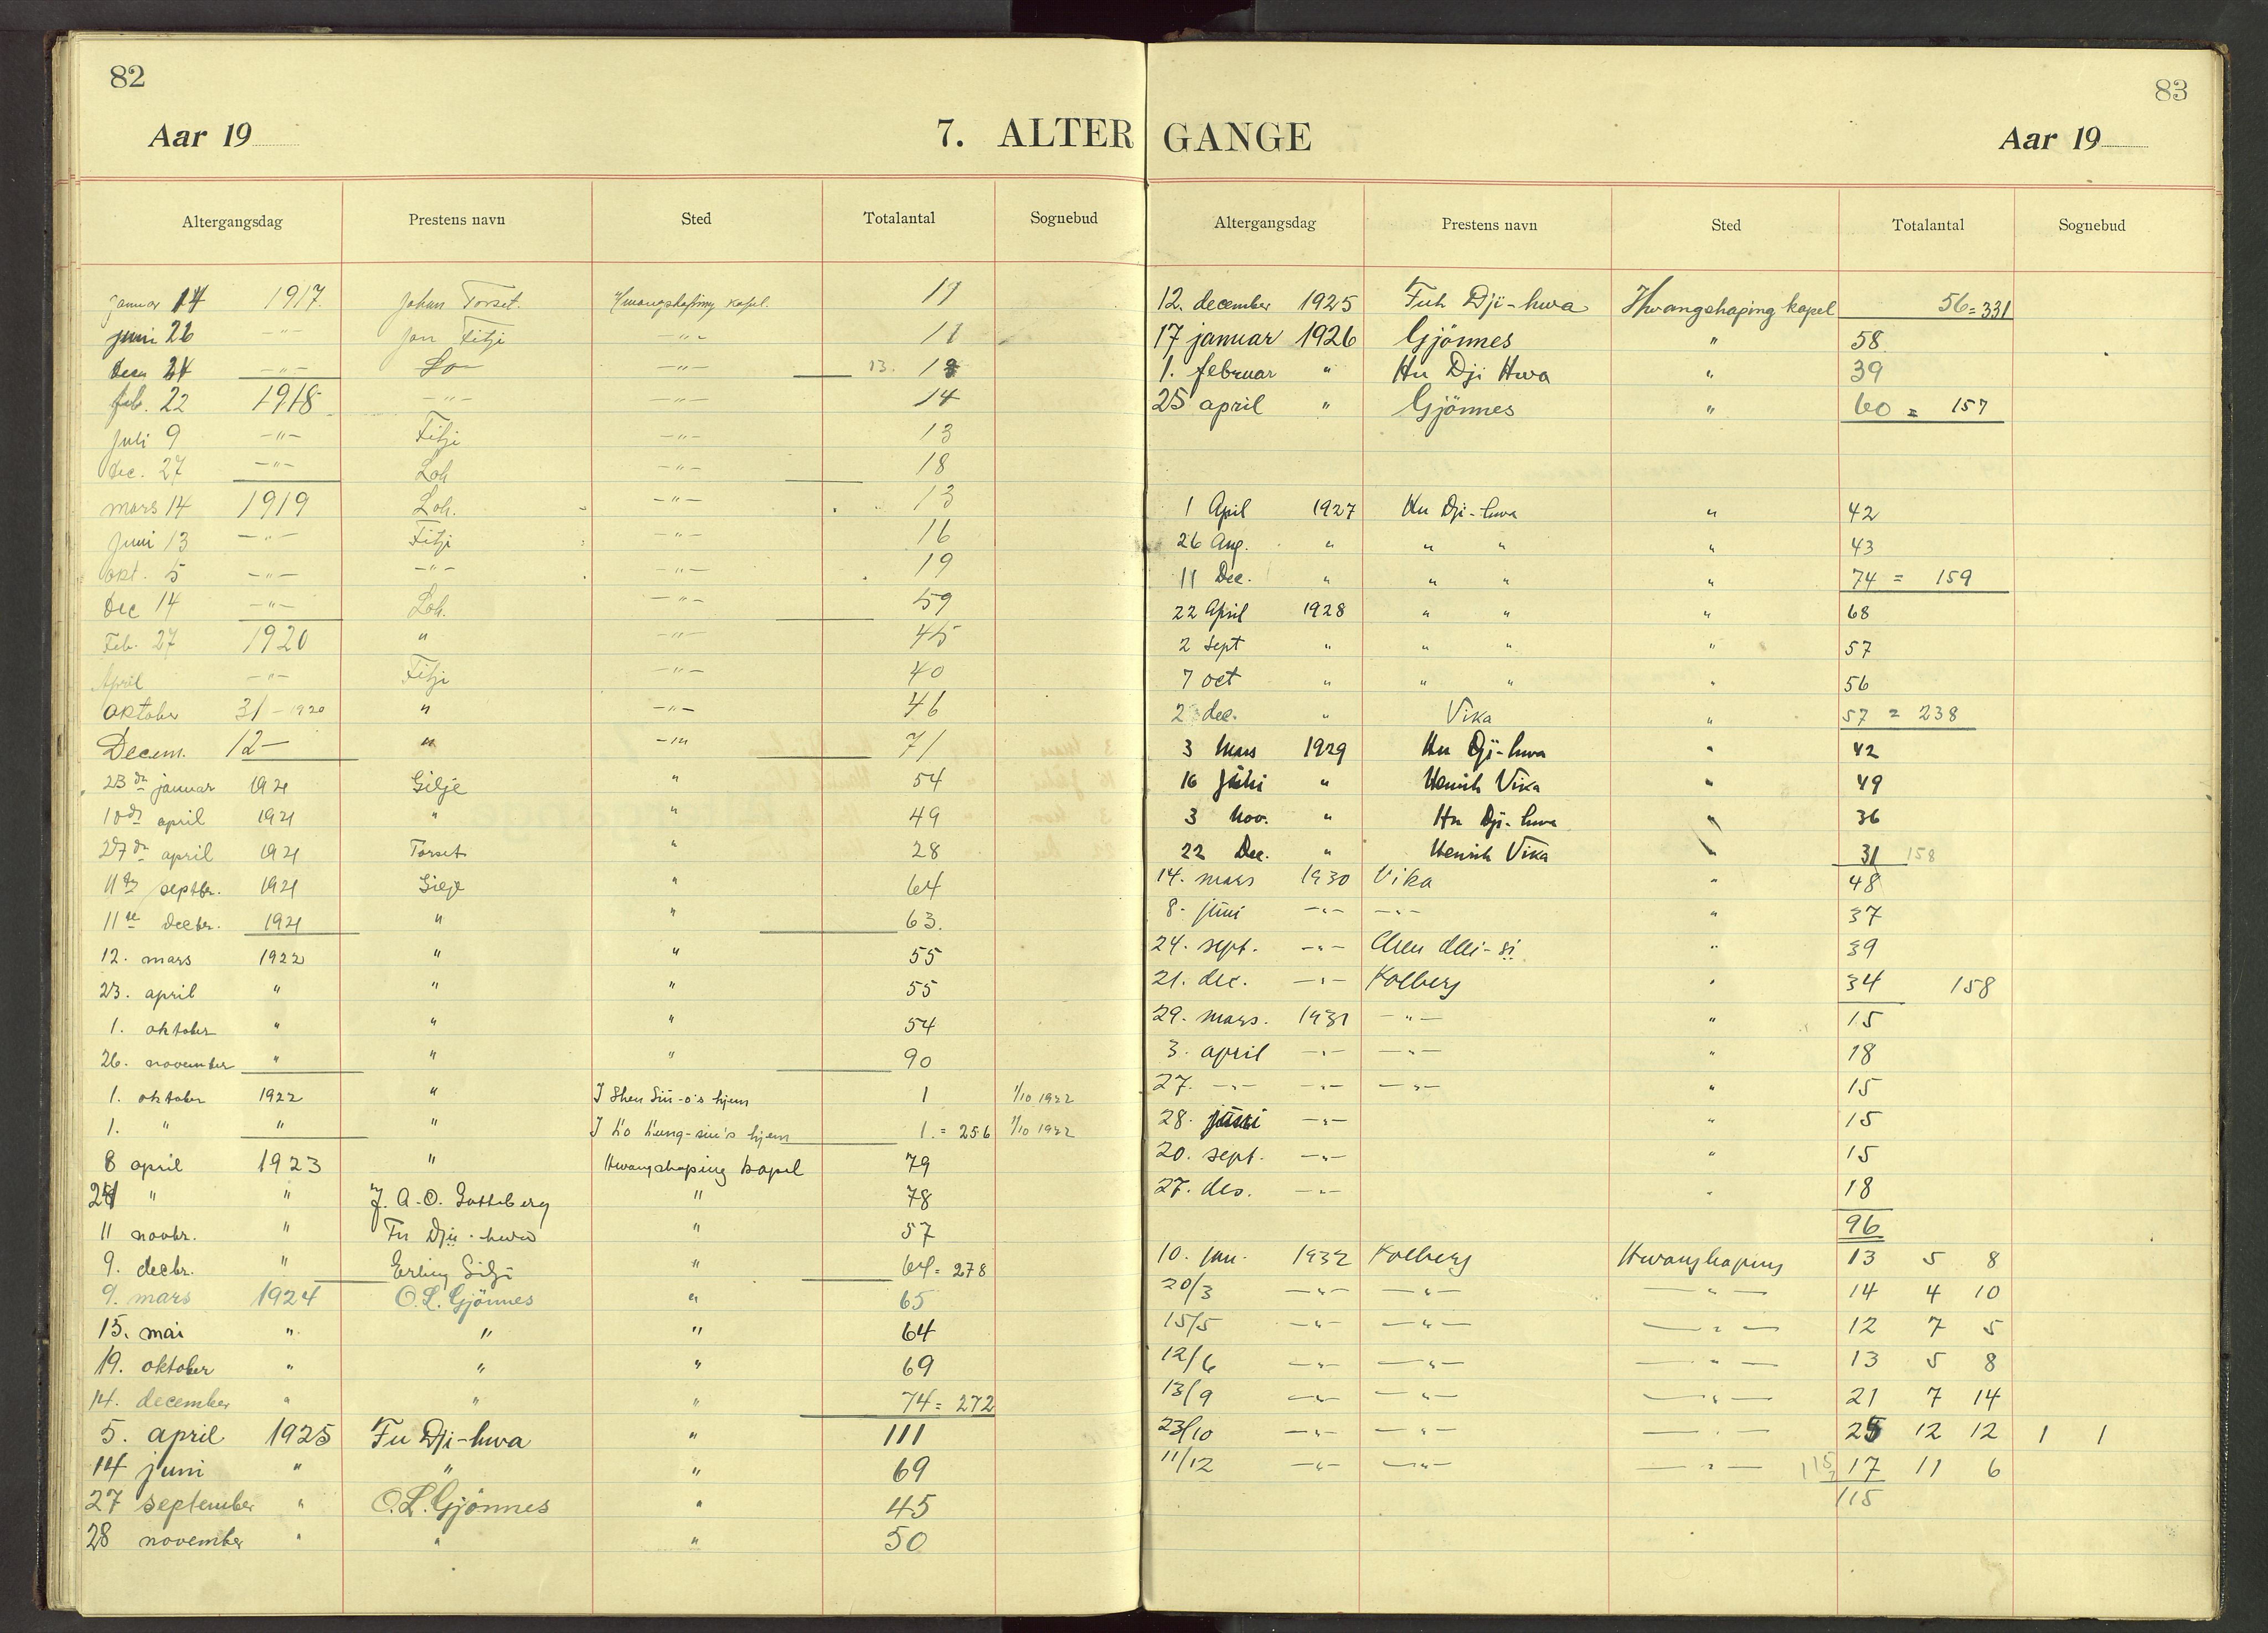 82
Aar 19
7. ALTER
Altergangsdag Prestens navn Sted Totalantal Sognebud
januar 14 1917. Johan Torset. Hwangshaping kapel. 11
juni 26 —"— Jon Fitje —"— 11
des 24 —"— Lo —"— 13. 13
feb. 22 1918 —"— —"— 14
Juli 9 —"— Fitje —"— 13
dec. 27 —"— Loh —"— 18
mars 14 1919 Loh. —"— 13
Juni 13 —"— Fitje —"— 16
okt. 5 —"— —"— —"— 19
Dec 14 —"— Loh. —"— 59
Feb. 27 1920 " —"— 45
April —"— Fitje —"— 40
oktober 31 – 1920 " —"— 46
Decem. 12 — " —"— 71
23de januar 1921 Gilje " 54
10de april 1921 " " 49
27de april 1921 Torset " 28
11te septbr. 1921 Gilje " 64
11te decbr. 1921 " " 63.
12. mars 1922 " " 55
23. april " " " 55
1. oktober " " " 54
26. november " " " 90
1. oktober 1922 " I Shen Siü-o's hjem 1 1/10 1922
1. " " " I Ko Kung-siu's hjem 1. = 256 1/10 1922
8 april 1923 " Hwangshaping kapel 79
24 " " J. A. O. Gotteberg " 78
11 novbr. " Fu Dji-hwa " 57
9. decbr. " Erling Gilje " 64 = 278
9. mars 1924 O. L. Gjönnes " 65
15. mai " " " 64
19. oktober " " " 69
14. december " " " 74 = 272
5. april 1925 Fu Dji-hwa " 111
14 juni " " " 69
27 september " O. L. Gjönnes " 45
28 november " " " 50
83
GANGE
Aar 19
Altergangsdag Prestens navn Sted Totalantal Sognebud
12. december 1925 Fuh Dji-hwa Hwangshaping kapel 56 = 331
17 januar 1926 Gjönnes " 58
1. februar " Hu Dji Hwa " 39
25 april " Gjönnes " 60 = 157
1 April 1927 Hu Dji-hwa " 42
26 Aug. " " " " 43
11 Dec. " " " " 74 = 159
22 April 1928 " " " 68
2 Sept " " " " 57
7 oct " " " " 56
23 dec. " Vika " 57 = 238
3 Mars 1929 Hu Dji-hwa " 42
16 Juni " Henrik Vika " 49
3 Nov. " Hu Dji-hwa " 36
22 Dec. " Henrik Vika " 31 158
14. mars 1930 Vika " 48
8. juni —"— —"— " 37
24. sept. —"— Chen - si " 39
21. dec. —"— Kolberg " 34 158
29. mars. 1931 —"— " 15
3. april —"— —"— " 18
27. —"— —"— —"— " 15
28. juni —"— " 15
20. sept. —"— " 15
27. des. —"— " 18
96
10. jan. 1932 Kolberg Hwangshaping 13 5 8
20/3 —"— —"— —"— 14 4 10
15/5 —"— —"— —"— 12 7 5
12/6 —"— —"— —"— 13 5 8
13/9 —"— —"— —"— 21 7 14
23/10 —"— —"— —"— 25 12 12 1 1
11/12 —"— —"— —"— 115 17 11 6
115